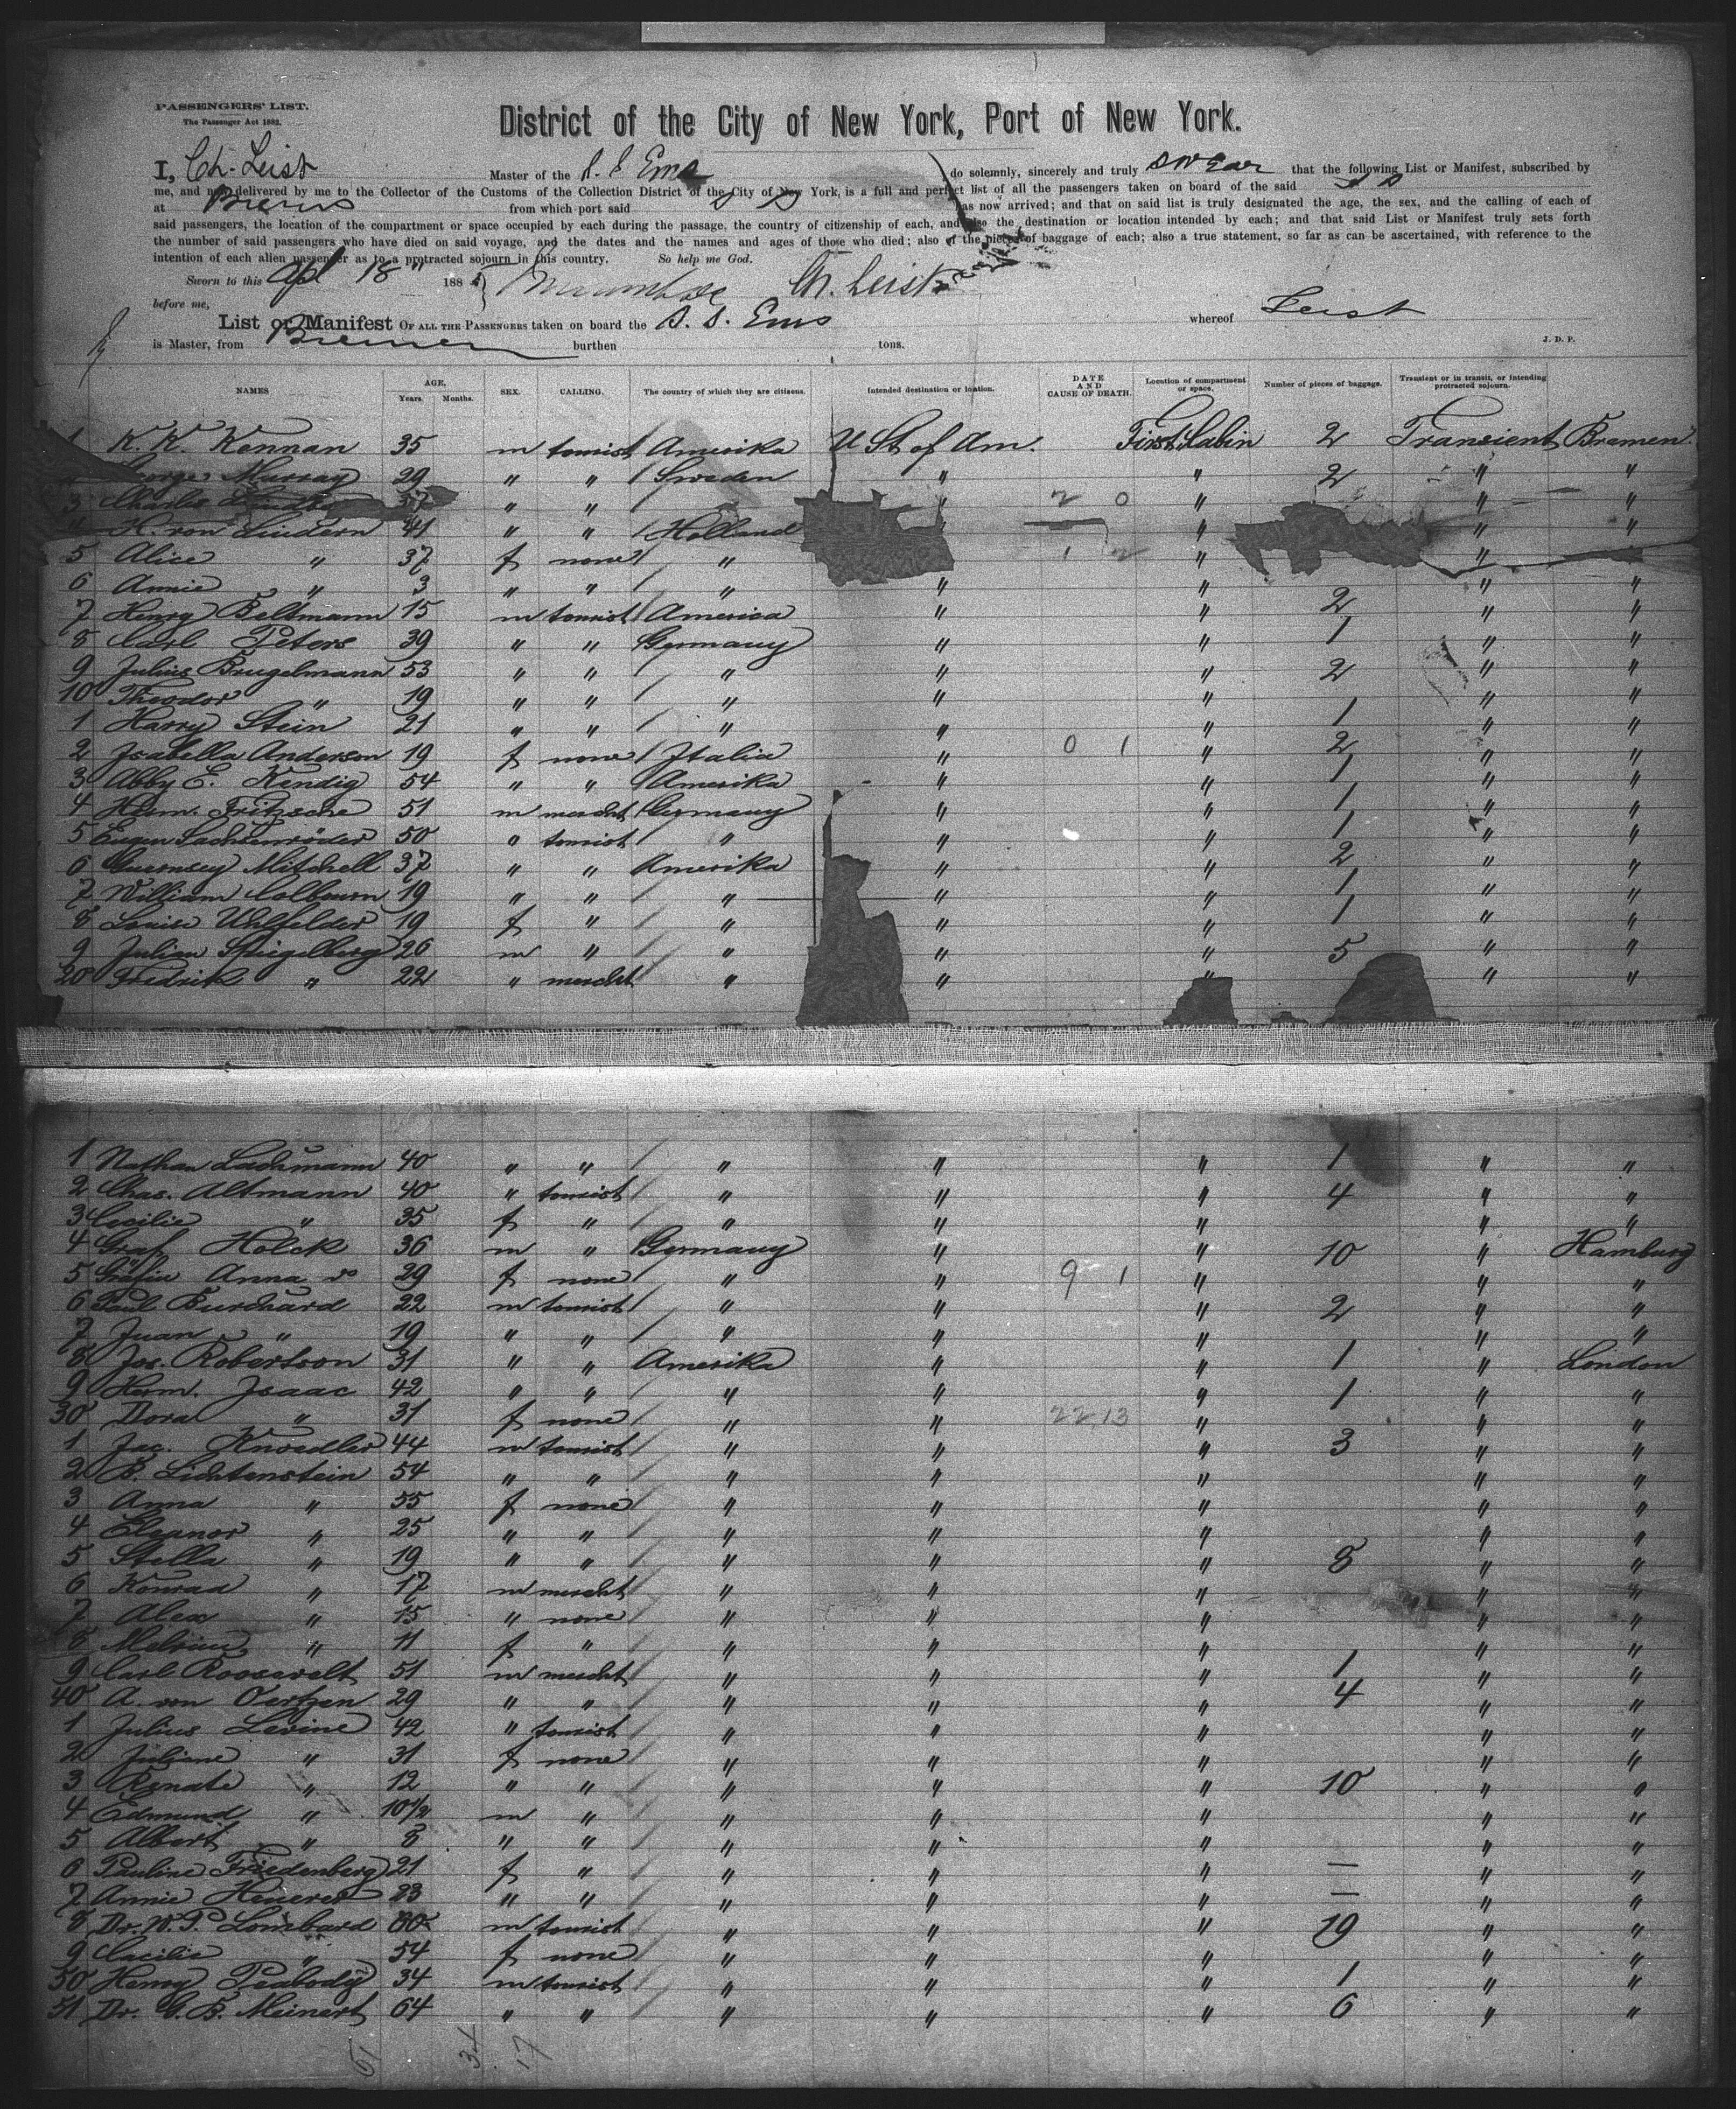 PASSENGERS' LIST.
The Passenger Act 1882.
District of the City of New York, Port of New York.
I, Ch. Leist Master of the S. S. Ems do solemnly, sincerely and truly swear that the following List or Manifest, subscribed by
me, and now delivered by me to the Collector of the Customs of the Collection District of the City of New York, is a full and perfect list of all the passengers taken on board of the said S S
at from which port said S S has now arrived; and that on said list is truly designated the age, the sex, and the calling of each of
said passengers, the location of the compartment or space occupied by each during the passage, the country of citizenship of each, and also the destination or location intended by each; and that said List or Manifest truly sets forth
the number of said passengers who have died on said voyage, and the dates and the names and ages of those who died; also of the pieces of baggage of each; also a true statement, so far as can be ascertained, with reference to the
intention of each alien passenger as to a protracted sojourn in this country. So help me God.
Sworn to this Apl 18" 1885 Ch. Leist
before me,
List or Manifest OF ALL THE PASSENGERS taken on board the S. S. Ems whereof Leist
is Master, from Bremen burthen tons.
J. D. P.
NAMES AGE. Years. Months. SEX. CALLING. The country of which they are citizens. Intended destination or location. DATE AND CAUSE OF DEATH. Location of compartment or space. Number of pieces of baggage. Transient or in transit, or intending protracted sojourn.
1 K. K. Kennan 35 m tourist Amerika U St of Am. First Cabin 2 Transient Bremen
George Murray 29 " " Sweden " " 2 " "
3 Charles 37 " " " 2 0 " " "
K. von Lindern 41 " " Holland " " "
5 Alice " 37 f none " " 1 2 " "
6 Annie " 3 " " " " " " "
7 Henry Beltmann 15 m tourist America " " 2 " "
8 Carl Peters 39 " " Germany " " 1 " "
9 Julius Brugelmann 53 " " " " " 2 " "
10 Theodor " 19 " " " " " " "
1 Harry Stein 21 " " " " " 1 " "
2 Isabella Anderson 19 f none Italia " 0 1 " 2 " "
3 Abby E. Kendig 54 " " Amerika " " 1 " "
4 Herm. Fritzsche 51 m mercht Germany " " 1 " "
5 Eugen Sachsenröder 50 " tourist " " " 1 " "
6 Guernsey Mitchell 37 " " Amerika " " 2 " "
7 William Colbourn 19 " " " " " 1 " "
8 Louise Uhlfelder 19 f " " " " 1 " "
9 Julian Spiegelberg 26 m " " " " 5 " "
20 Fredrik " 22 " mercht " " " " "
1 Nathan Lachmann 40 " " " " " 1 " "
2 Chas. Altmann 40 " tourist " " " 4 " "
3 Cecilie " 35 f " " " " " "
4 Graf Holck 36 m " Germany " " 10 " Hamburg
5 Gräfin Anna do 29 f none " " 9 1 " " "
6 Paul Burchard 22 m tourist " " " 2 " "
7 Juan " 19 " " " " " " "
8 Jos. Robertson 31 " " Amerika " " 1 " London
9 Herm. Isaac 42 " " " " " 1 " "
30 Dora " 31 f none " " 22 13 " " "
1 Jac. Knoedler 44 m tourist " " " 3 " "
2 B. Lichtenstein 54 " " " " " " "
3 Anna " 55 f none " " " " "
4 Eleanor " 25 " " " " " " "
5 Stella " 19 " " " " " 8 " "
6 Konrad " 17 m mercht " " " " "
7 Alex " 15 " none " " " " "
8 " 11 f " " " " " "
9 Carl Roosevalt 51 m mercht " " " 1 " "
40 A. von Oertzen 29 " " " " " 4 " "
1 Julius Levine 42 " tourist " " " " "
2 Juliane " 31 f none " " " " "
3 Renate " 12 " " " " " 10 " "
4 Edmund " 10 1/2 m " " " " " "
5 Albert " 8 " " " " " " "
6 Pauline Friedenberg 21 f " " " " — " "
7 Annie 23 " " " " " — " "
8 Dr. W. P. Lombard 60 m tourist " " " 19 " "
9 Cacilie " 54 f none " " " " "
50 Henry Peabody 34 m tourist " " " 1 " "
51 Dr. C. B. Meinert 64 " " " " " 6 " "
51 34 17